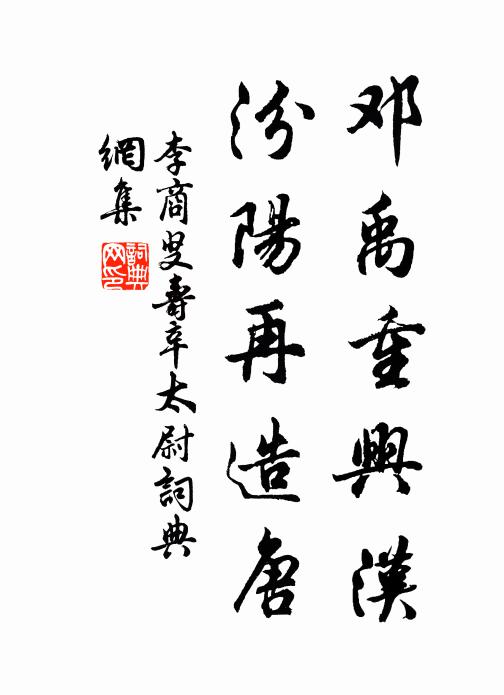 邓禹重興漢
汾陽再造唐
李商叟壽辛太尉詞典
網集
詞典網印